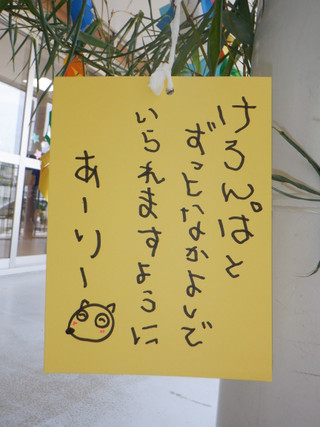 けろんぱと
ずっとなかよしで
いられますように
あーりー